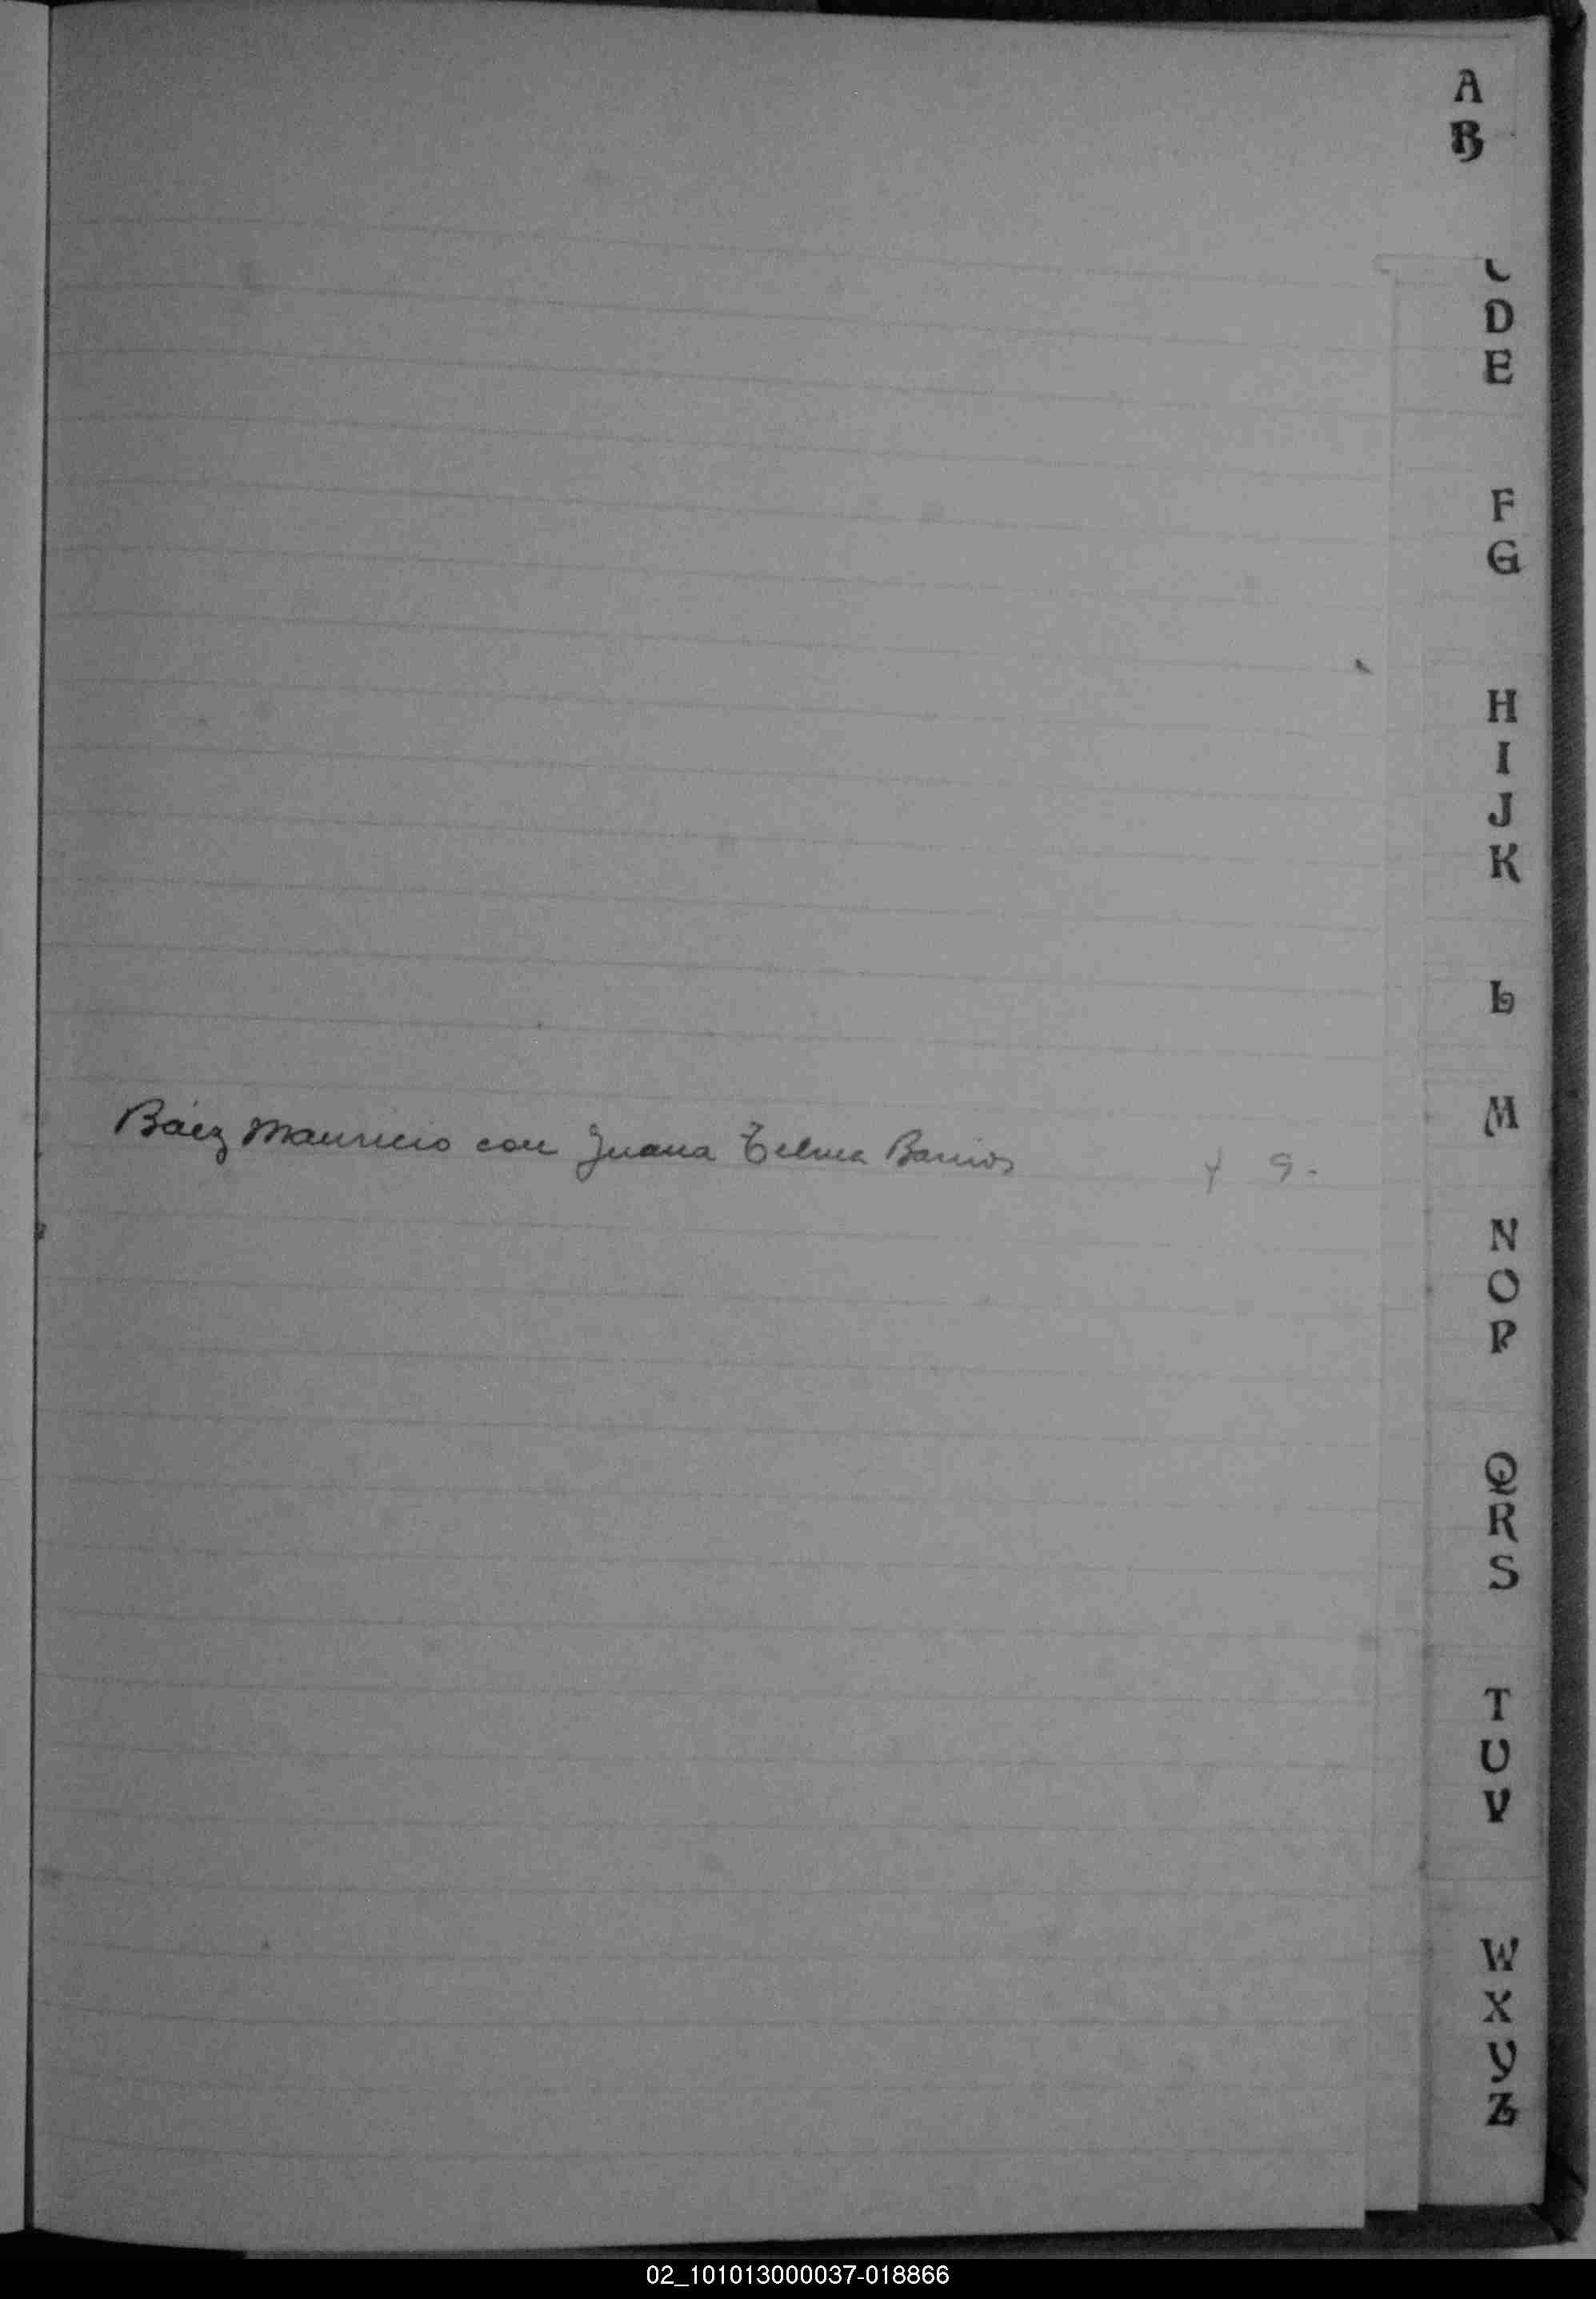 A
B
D
E
F
G
H
I
J
K
L
M
Báez Mauricio con Juana Telma Barrios 9.-
N
O
P
Q
R
S
T
U
V
W
X
Y
Z
02_101013000037-018866